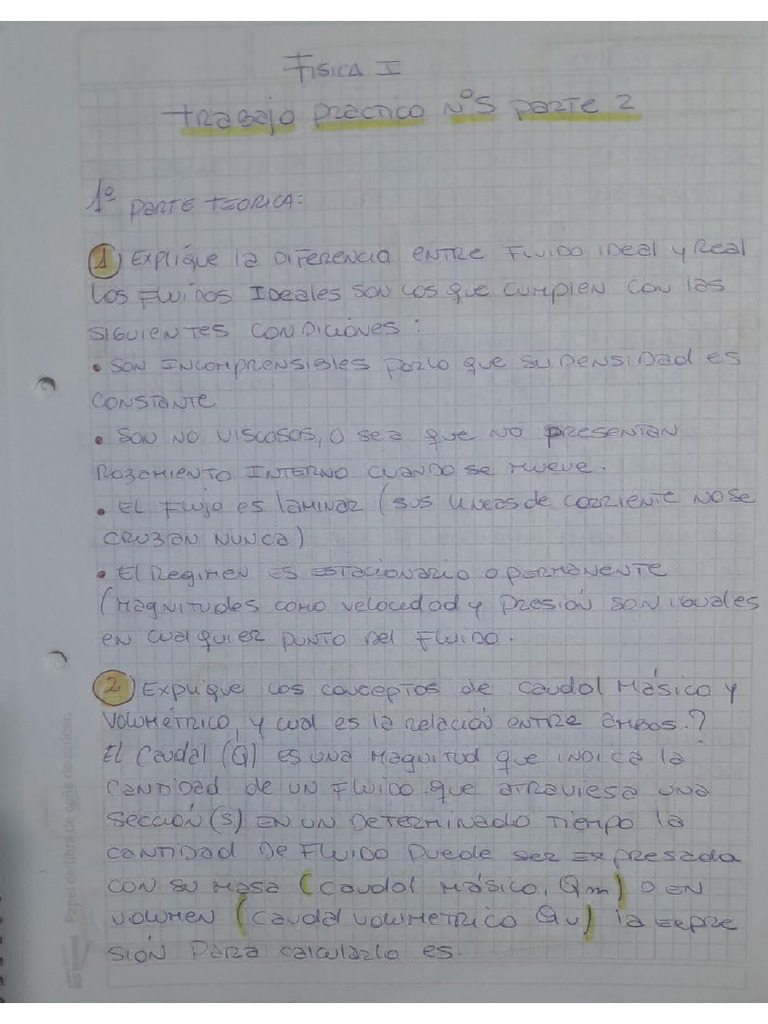 FISICA I
trabajo practico N°5 parte 2
1° parte teorica:
1) Explique la diferencia entre Fluido ideal y Real
Los Fluidos Ideales son los que cumplen con las
siguientes condiciones:
• son Incomprensibles porlo que su densidad es
constante
• son no viscosos, o sea que no presentan
Rozamiento Interno cuando se mueve.
• El Flujo es laminar (sus lineas de corriente no se
cruzan nunca)
• El Regimen es estacionario o permanente
(magnitudes como velocidad y presión son iguales
en cualquier punto del Fluido.
2) Explique los conceptos de caudal Másico y
volumétrico, y cual es la relación entre ambos.?
El caudal (Q) es una magnitud que indica la
cantidad de un Fluido que atraviesa una
sección(s) en un determinado tiempo la
cantidad de Fluido puede ser expresada
con su masa (caudal másico, Qm) o en
volumen (caudal volumetrico Qv) la expre
sión para calcularlo es.
Papel de fibra de caña de azúcar.